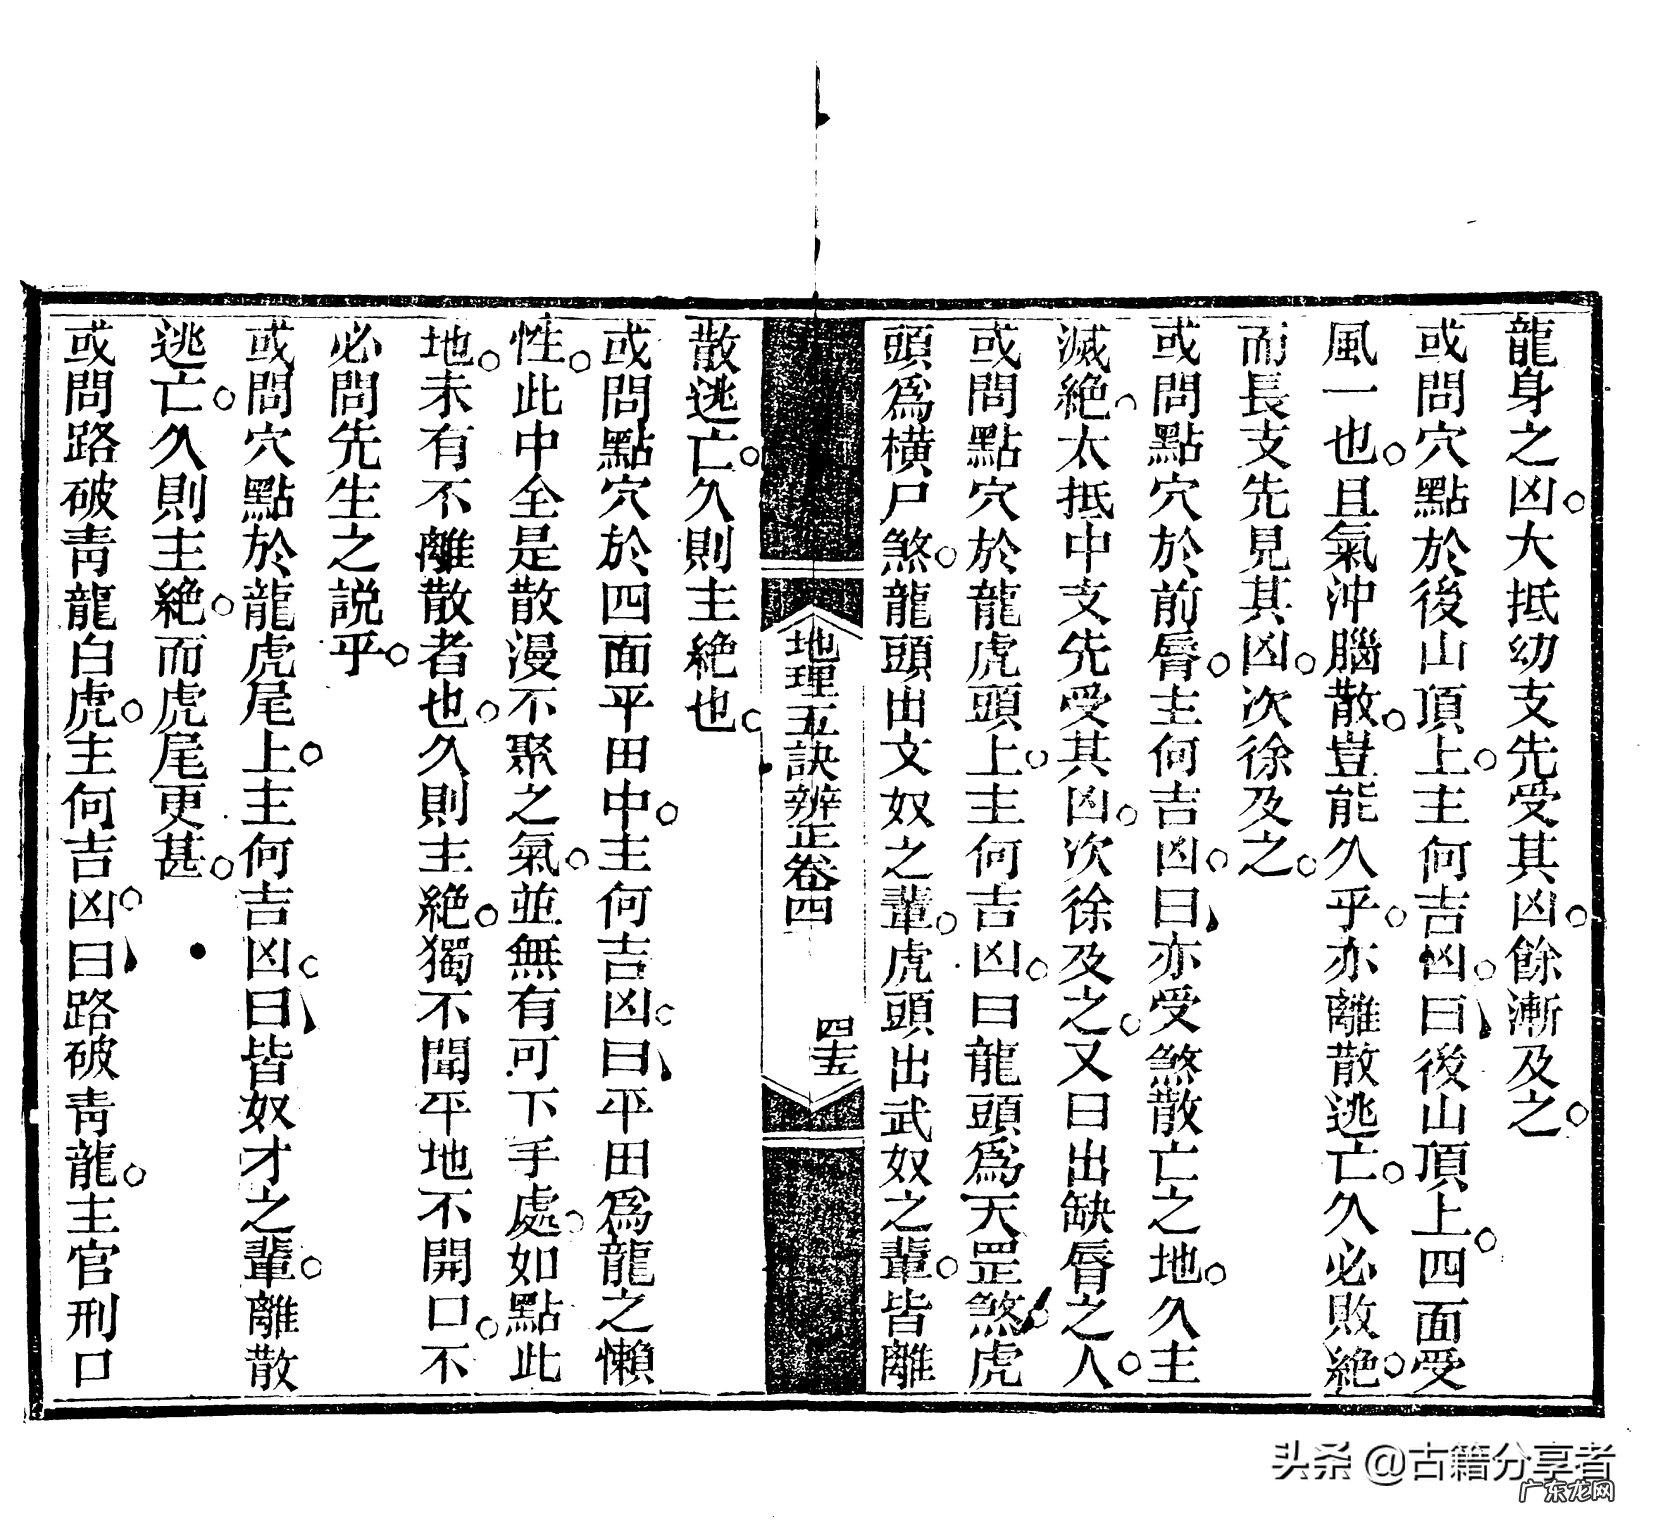 龍身之凶大抵幼支先受其凶餘漸及之
或問穴點於後山頂上主何吉凶曰後山頂上四面受
風一也且氣沖腦散豈能久乎亦離散逃亡久必敗絶
而長支先見其凶次徐及之
或問點穴於前脣主何吉凶曰亦受煞散亡之地久主
滅絶太抵中支先受其凶次徐及之又曰出缺脣之人
或問點穴於龍虎頭上主何吉凶曰龍頭爲天罡煞虎
頭爲橫尸煞龍頭出文奴之輩虎頭出武奴之輩皆離
地理五訣辨正卷四
四十五
散逃亡久則主絶也
或問點穴於四面平田中主何吉凶曰平田爲龍之懶
性此中全是散漫不聚之氣並無有可下手處如點此
地未有不離散者也久則主絶獨不聞平地不開口不
必問先生之説乎
或問穴點於龍虎尾上主何吉凶曰皆奴才之輩離散
逃亡久則主絶而虎尾更甚
或問路破靑龍白虎主何吉凶曰路破靑龍主官刑口
头条 @古籍分享者
广东龙网